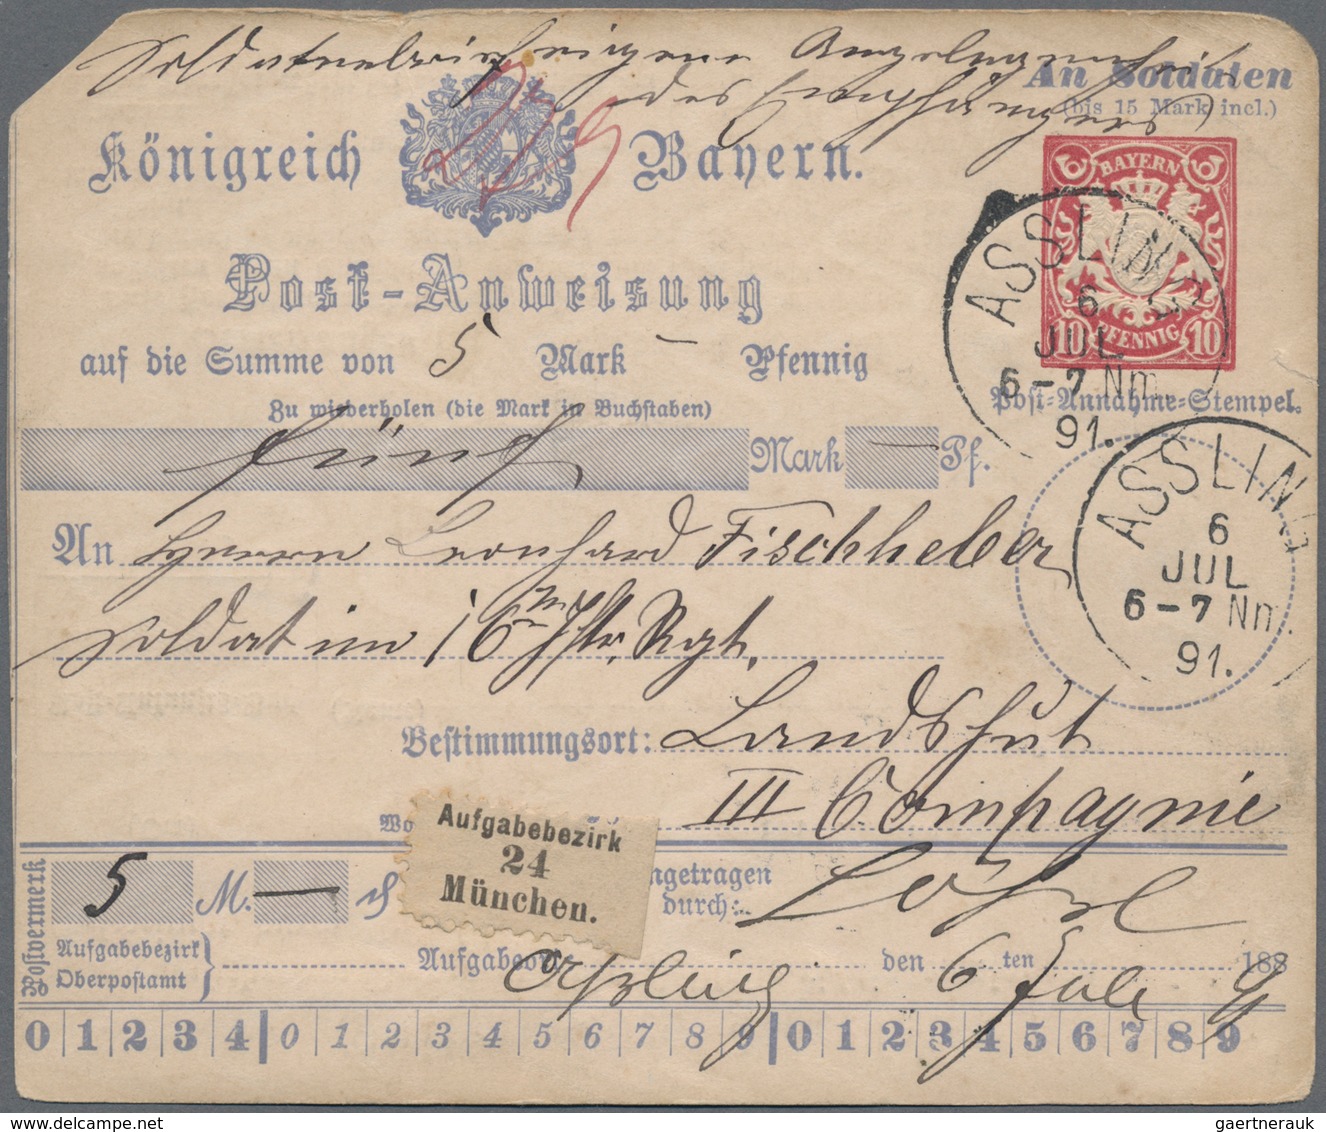 Soldatenbrief eigene Angelegenheit
des Empfängers
An Soldaten
(bis 15 Mark incl.)
Königreich Bayern.
BAYERN
10 PFENNIG 10
ASSLING
6
JUL
6-7 Nm.
91.
Post-Anweisung
auf die Summe von 5 Mark — Pfennig
Post-Annahme-Stempel.
Zu wiederholen (die Mark in Buchstaben)
fünf Mark — Pf.
ASSLING
6
JUL
6-7 Nm.
91.
An Herrn Leonhard Fischheber
Soldat im 16ten Iftr. Rgt.
Bestimmungsort: Landshut
III Compagnie
Aufgabebezirk
24
München.
Postvermerk
5 M. —
ngetragen
durch:
Aufgabebezirk
Oberpostamt
Aufgabeort Assling den 6 ten Juli 188
0 1 2 3 4 0 1 2 3 4 5 6 7 8 9 0 1 2 3 4 5 6 7 8 9
gaertnerauk